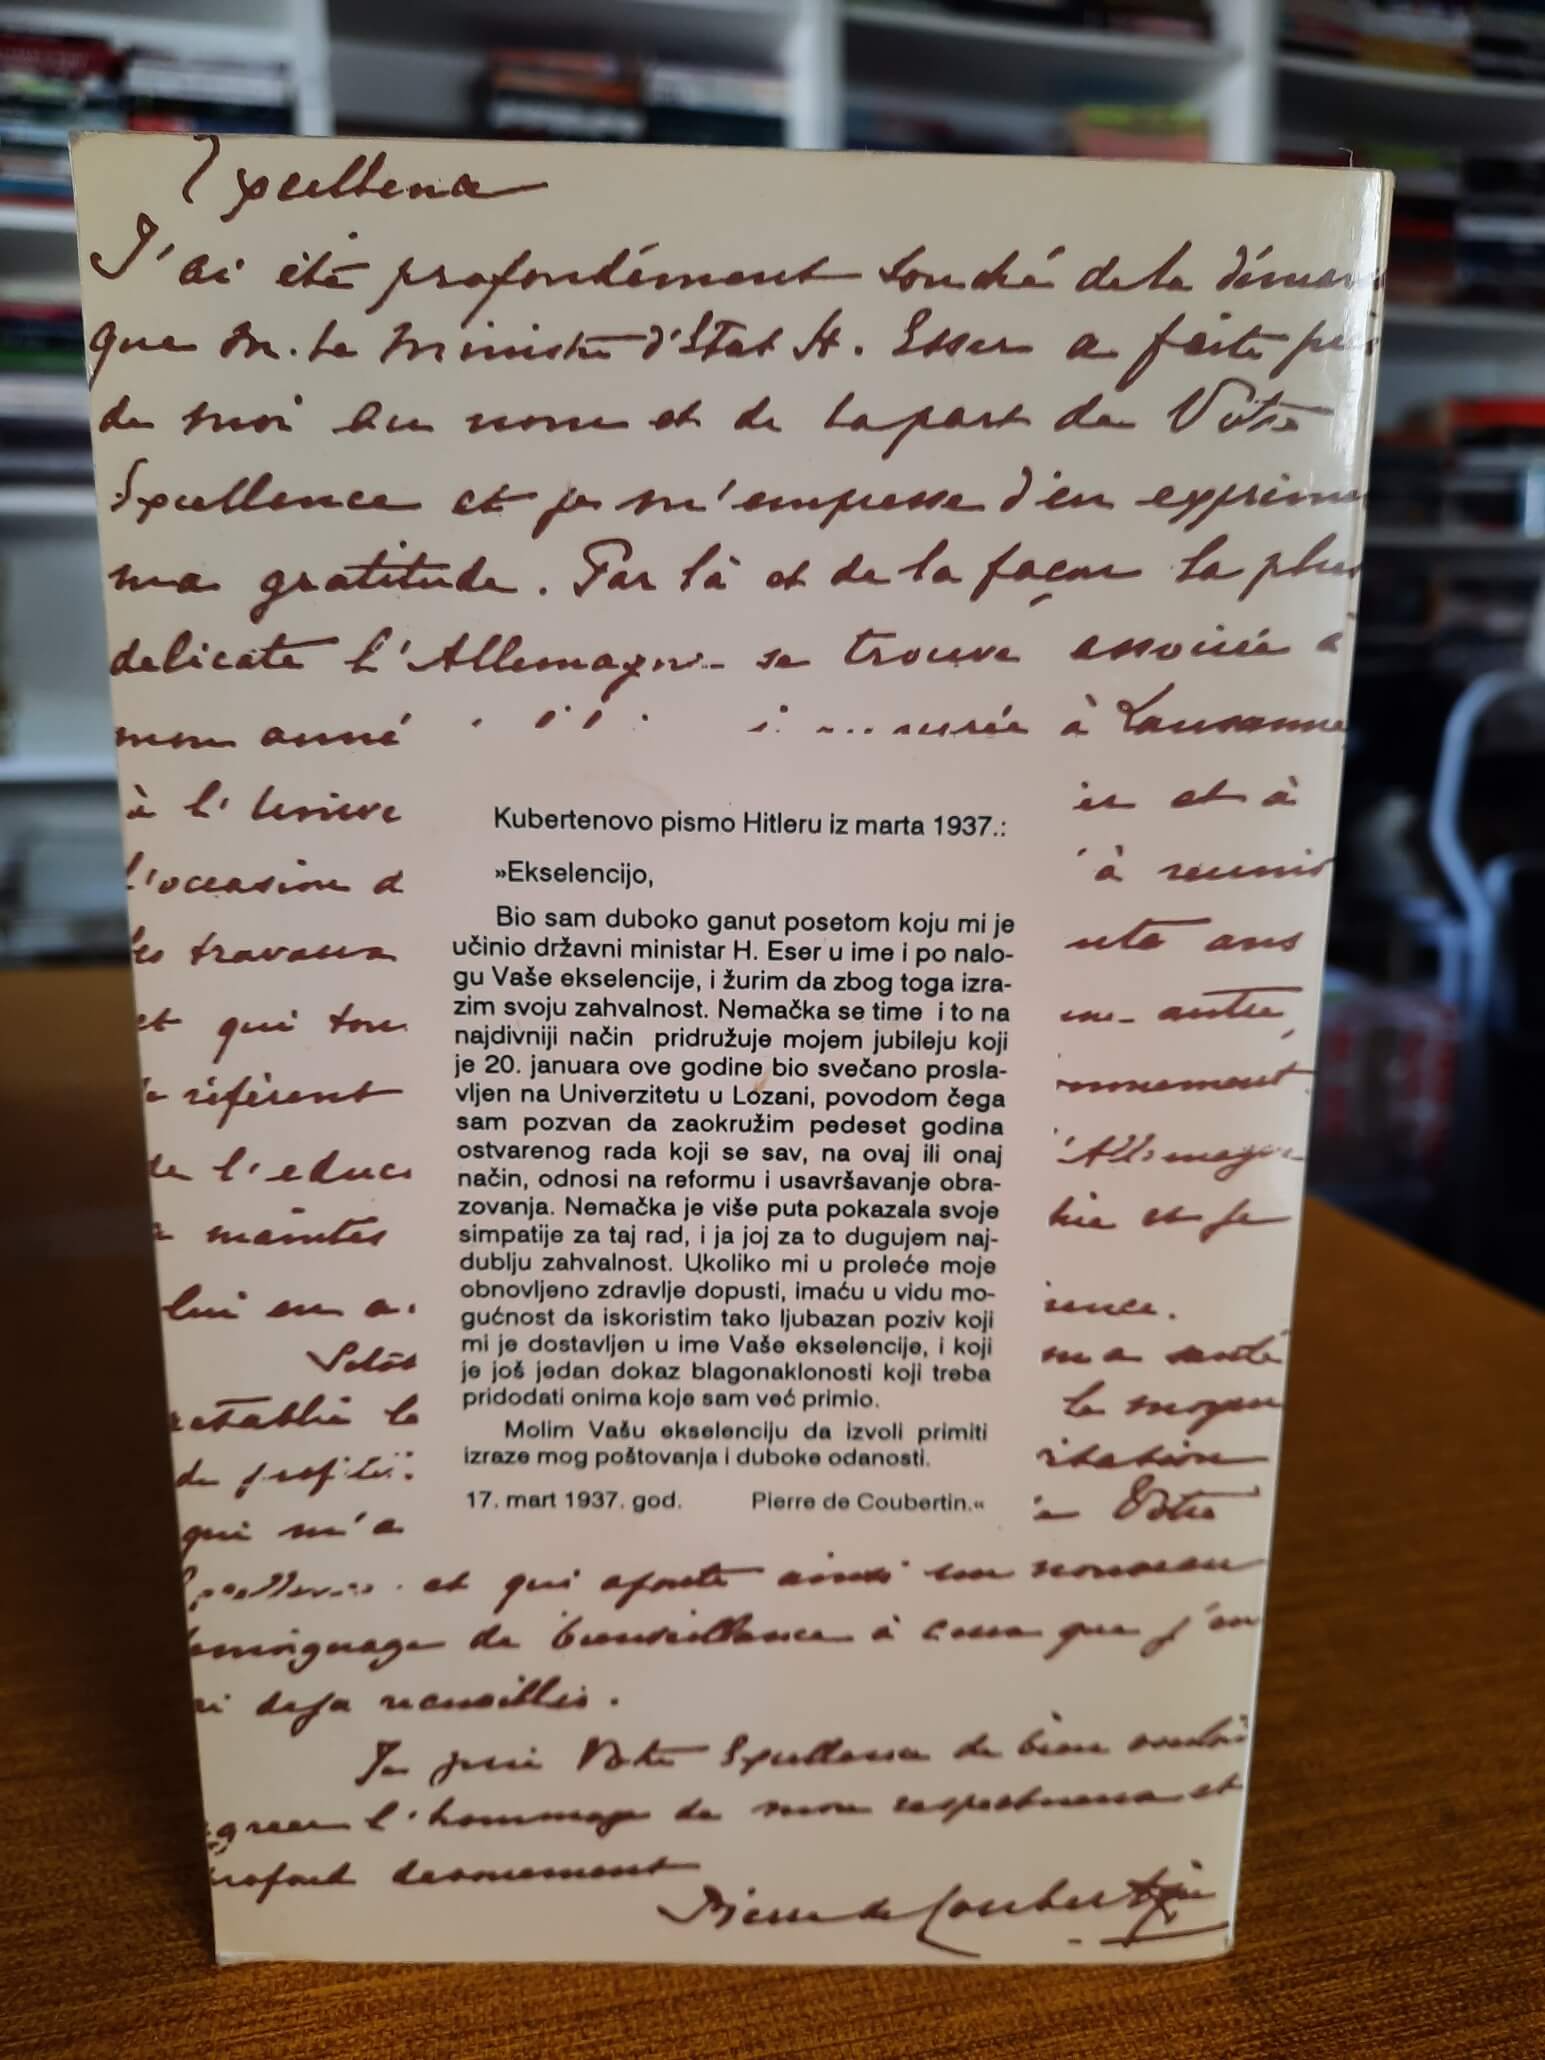 Excellence
J'ai été profondément touché de la
que M. le Ministre d'Etat H. Esser a faite
de moi au nom et de la part de Votre
Excellence et je m'empresse d'en exprimer
ma gratitude. Par là et de la façon la plus
delicate l'Allemagne se trouve associée à
mon à Lausanne
à l' et à
l'occasion d 'à
travaux
et qui autre
référent
de l'educ l'Allemagne
a et je
lui en a
ma santé
le moyen
de
qui m'a Votre
Excellence et qui ajoute ainsi un nouveau
de bienveillance à ceux que j'en
deja recueillis.
Je prie Votre Excellence de bien
l'hommage de mon respectueux et
Pierre de Coubertin
Kubertenovo pismo Hitleru iz marta 1937.:
»Ekselencijo,
Bio sam duboko ganut posetom koju mi je
učinio državni ministar H. Eser u ime i po nalo-
gu Vaše ekselencije, i žurim da zbog toga izra-
zim svoju zahvalnost. Nemačka se time i to na
najdivniji način pridružuje mojem jubileju koji
je 20. januara ove godine bio svečano prosla-
vljen na Univerzitetu u Lozani, povodom čega
sam pozvan da zaokružim pedeset godina
ostvarenog rada koji se sav, na ovaj ili onaj
način, odnosi na reformu i usavršavanje obra-
zovanja. Nemačka je više puta pokazala svoje
simpatije za taj rad, i ja joj za to dugujem naj-
dublju zahvalnost. Ukoliko mi u proleće moje
obnovljeno zdravlje dopusti, imaću u vidu mo-
gućnost da iskoristim tako ljubazan poziv koji
mi je dostavljen u ime Vaše ekselencije, i koji
je još jedan dokaz blagonaklonosti koji treba
pridodati onima koje sam već primio.
Molim Vašu ekselenciju da izvoli primiti
izraze mog poštovanja i duboke odanosti.
17. mart 1937. god. Pierre de Coubertin.«